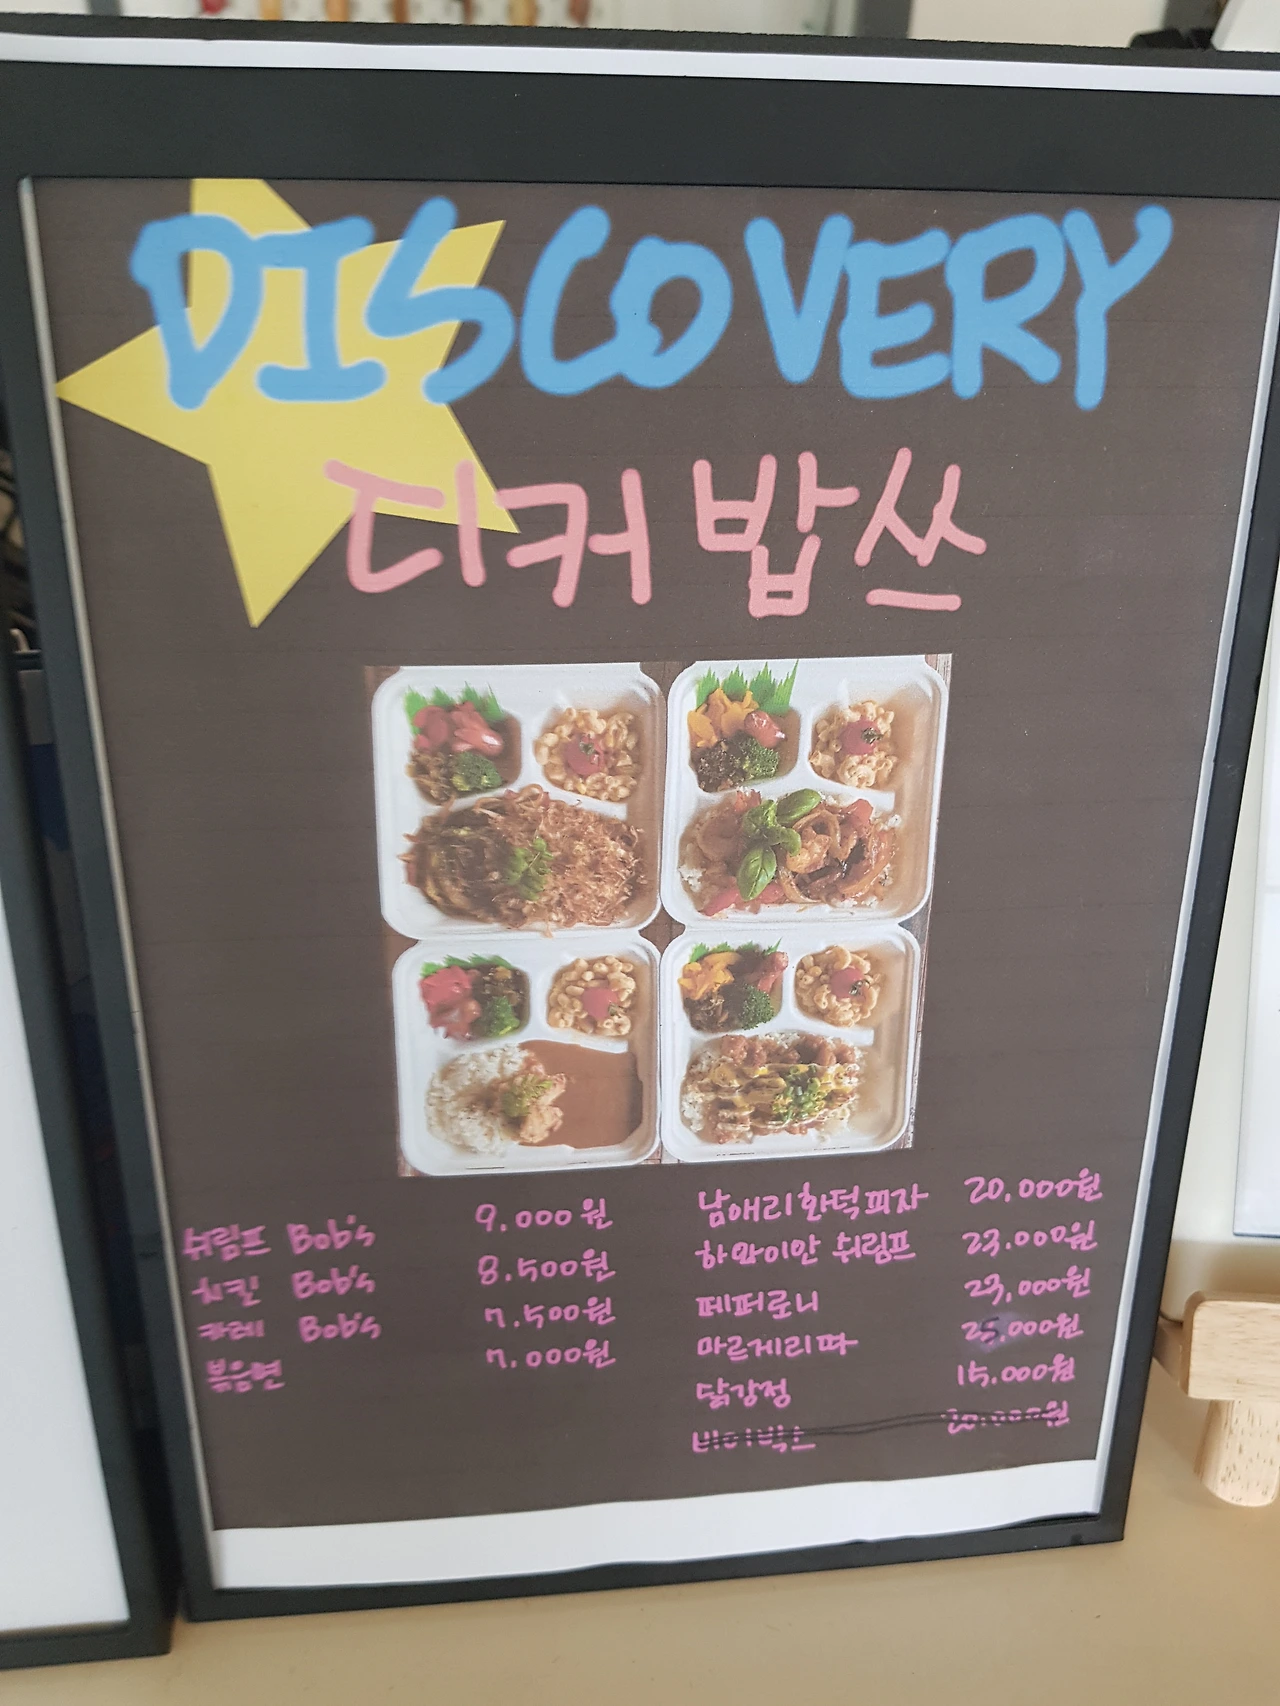 DISCOVERY
디커밥쓰
쉬림프 Bob's 9.000원
치킨 Bob's 8.500원
카레 Bob's 7.500원
볶음면 7.000원
남애리화덕피자 20.000원
하와이안 쉬림프 23.000원
페퍼로니 23,000원
마르게리따 25,000원
닭강정 15.000원
20.000원